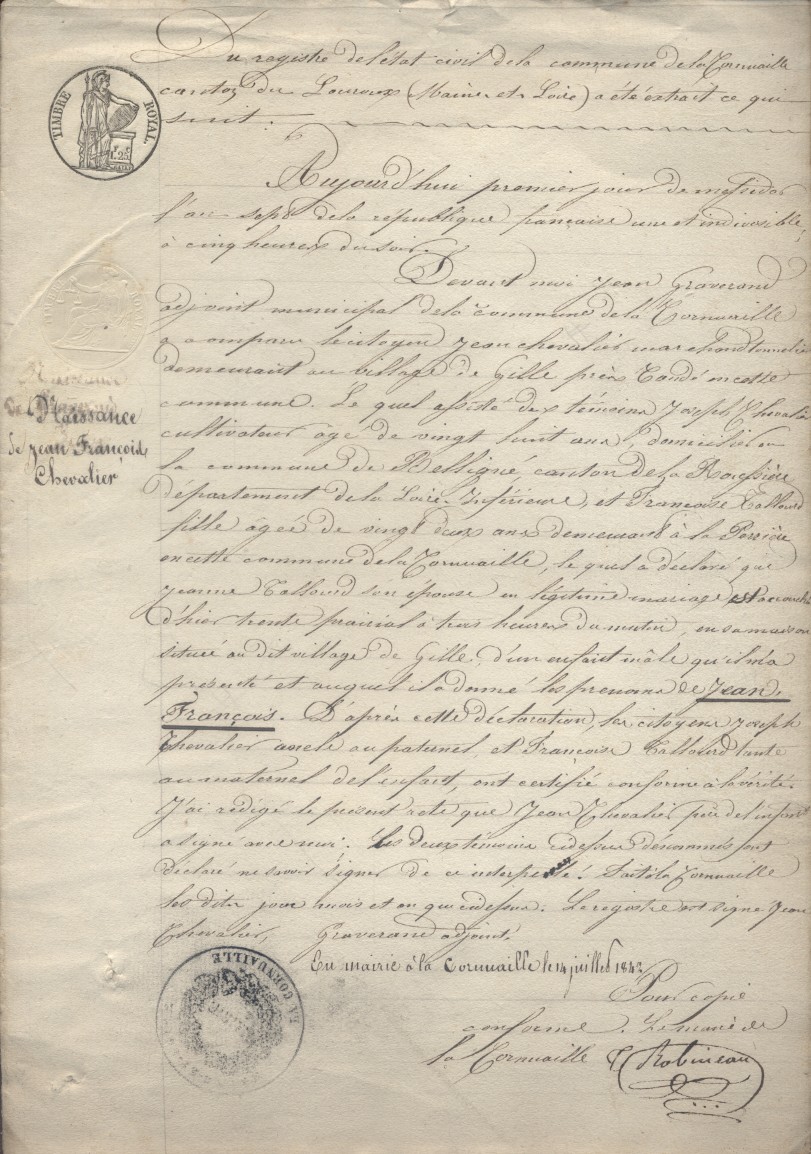 Du registre de l'état civil de la commune de la Cornuaille
canton du Louroux (Maine et Loire) a été extrait ce qui
suit.
TIMBRE ROYAL
1.25
Aujourd'hui premier jour de messidor
l'an sept de la republique française une et indivisible,
à cinq heures du soir.
Devant moi Jean Graverand
adjoint municipal de la commune de la Cornuaille
a comparu le citoyen Jean Chevalier marchand tonnelier
demeurant au village de Gille près Candé en cette
commune. Le quel assisté de témoins Joseph Chevalier
Naissance
de Jean François
Chevalier
cultivateur âgé de vingt huit ans, domicilié en
la commune de Belligné, canton de la Rouxière
département de la Loire Inférieure, et Françoise Tallourd
fille âgée de vingt deux ans demeurant à la
en cette commune de la Cornuaille, le quel a déclaré que
Jeanne Tallourd son épouse en légitime mariage est accouchée
d'hier trente prairial à trois heures du matin, en sa maison
située au dit village de Gille, d'un enfant mâle qu'il m'a
présenté et auquel il a donné les prenoms de Jean
François. D'après cette déclaration, les citoyens Joseph
Chevalier oncle au paternel et Françoise Tallourd tante
au maternel de l'enfant, ont certifié conforme à la vérité.
J'ai rédigé le présent acte que Jean Chevalier père de l'enfant
a signé avec moi. Les deux témoins cidessus dénommés ont
déclaré ne savoir signer de ce Fait à la Cornuaille
les dits jour mois et an que cidessus. Le registre est signé Jean
Chevalier, Graverand adjoint.
En mairie à la Cornuaille le 14 juillet 1842
Pour copie
conforme. Le maire de
la Cornuaille
Robineau
LA CORNUAILLE